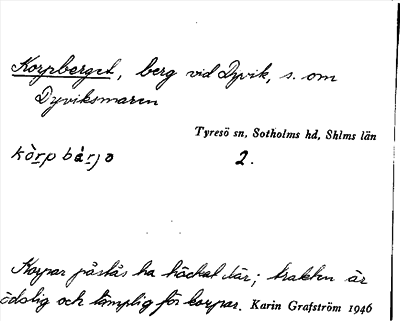 Korpberget, berg vid Dyvik, s. om
Dyviksmaren
Tyresö sn, Sotholms hd, Sthlms län
kòrp bárjə 2.
Korpar påstås ha häckat där; trakten är
ödslig och lämplig för korpar. Karin Grafström 1946